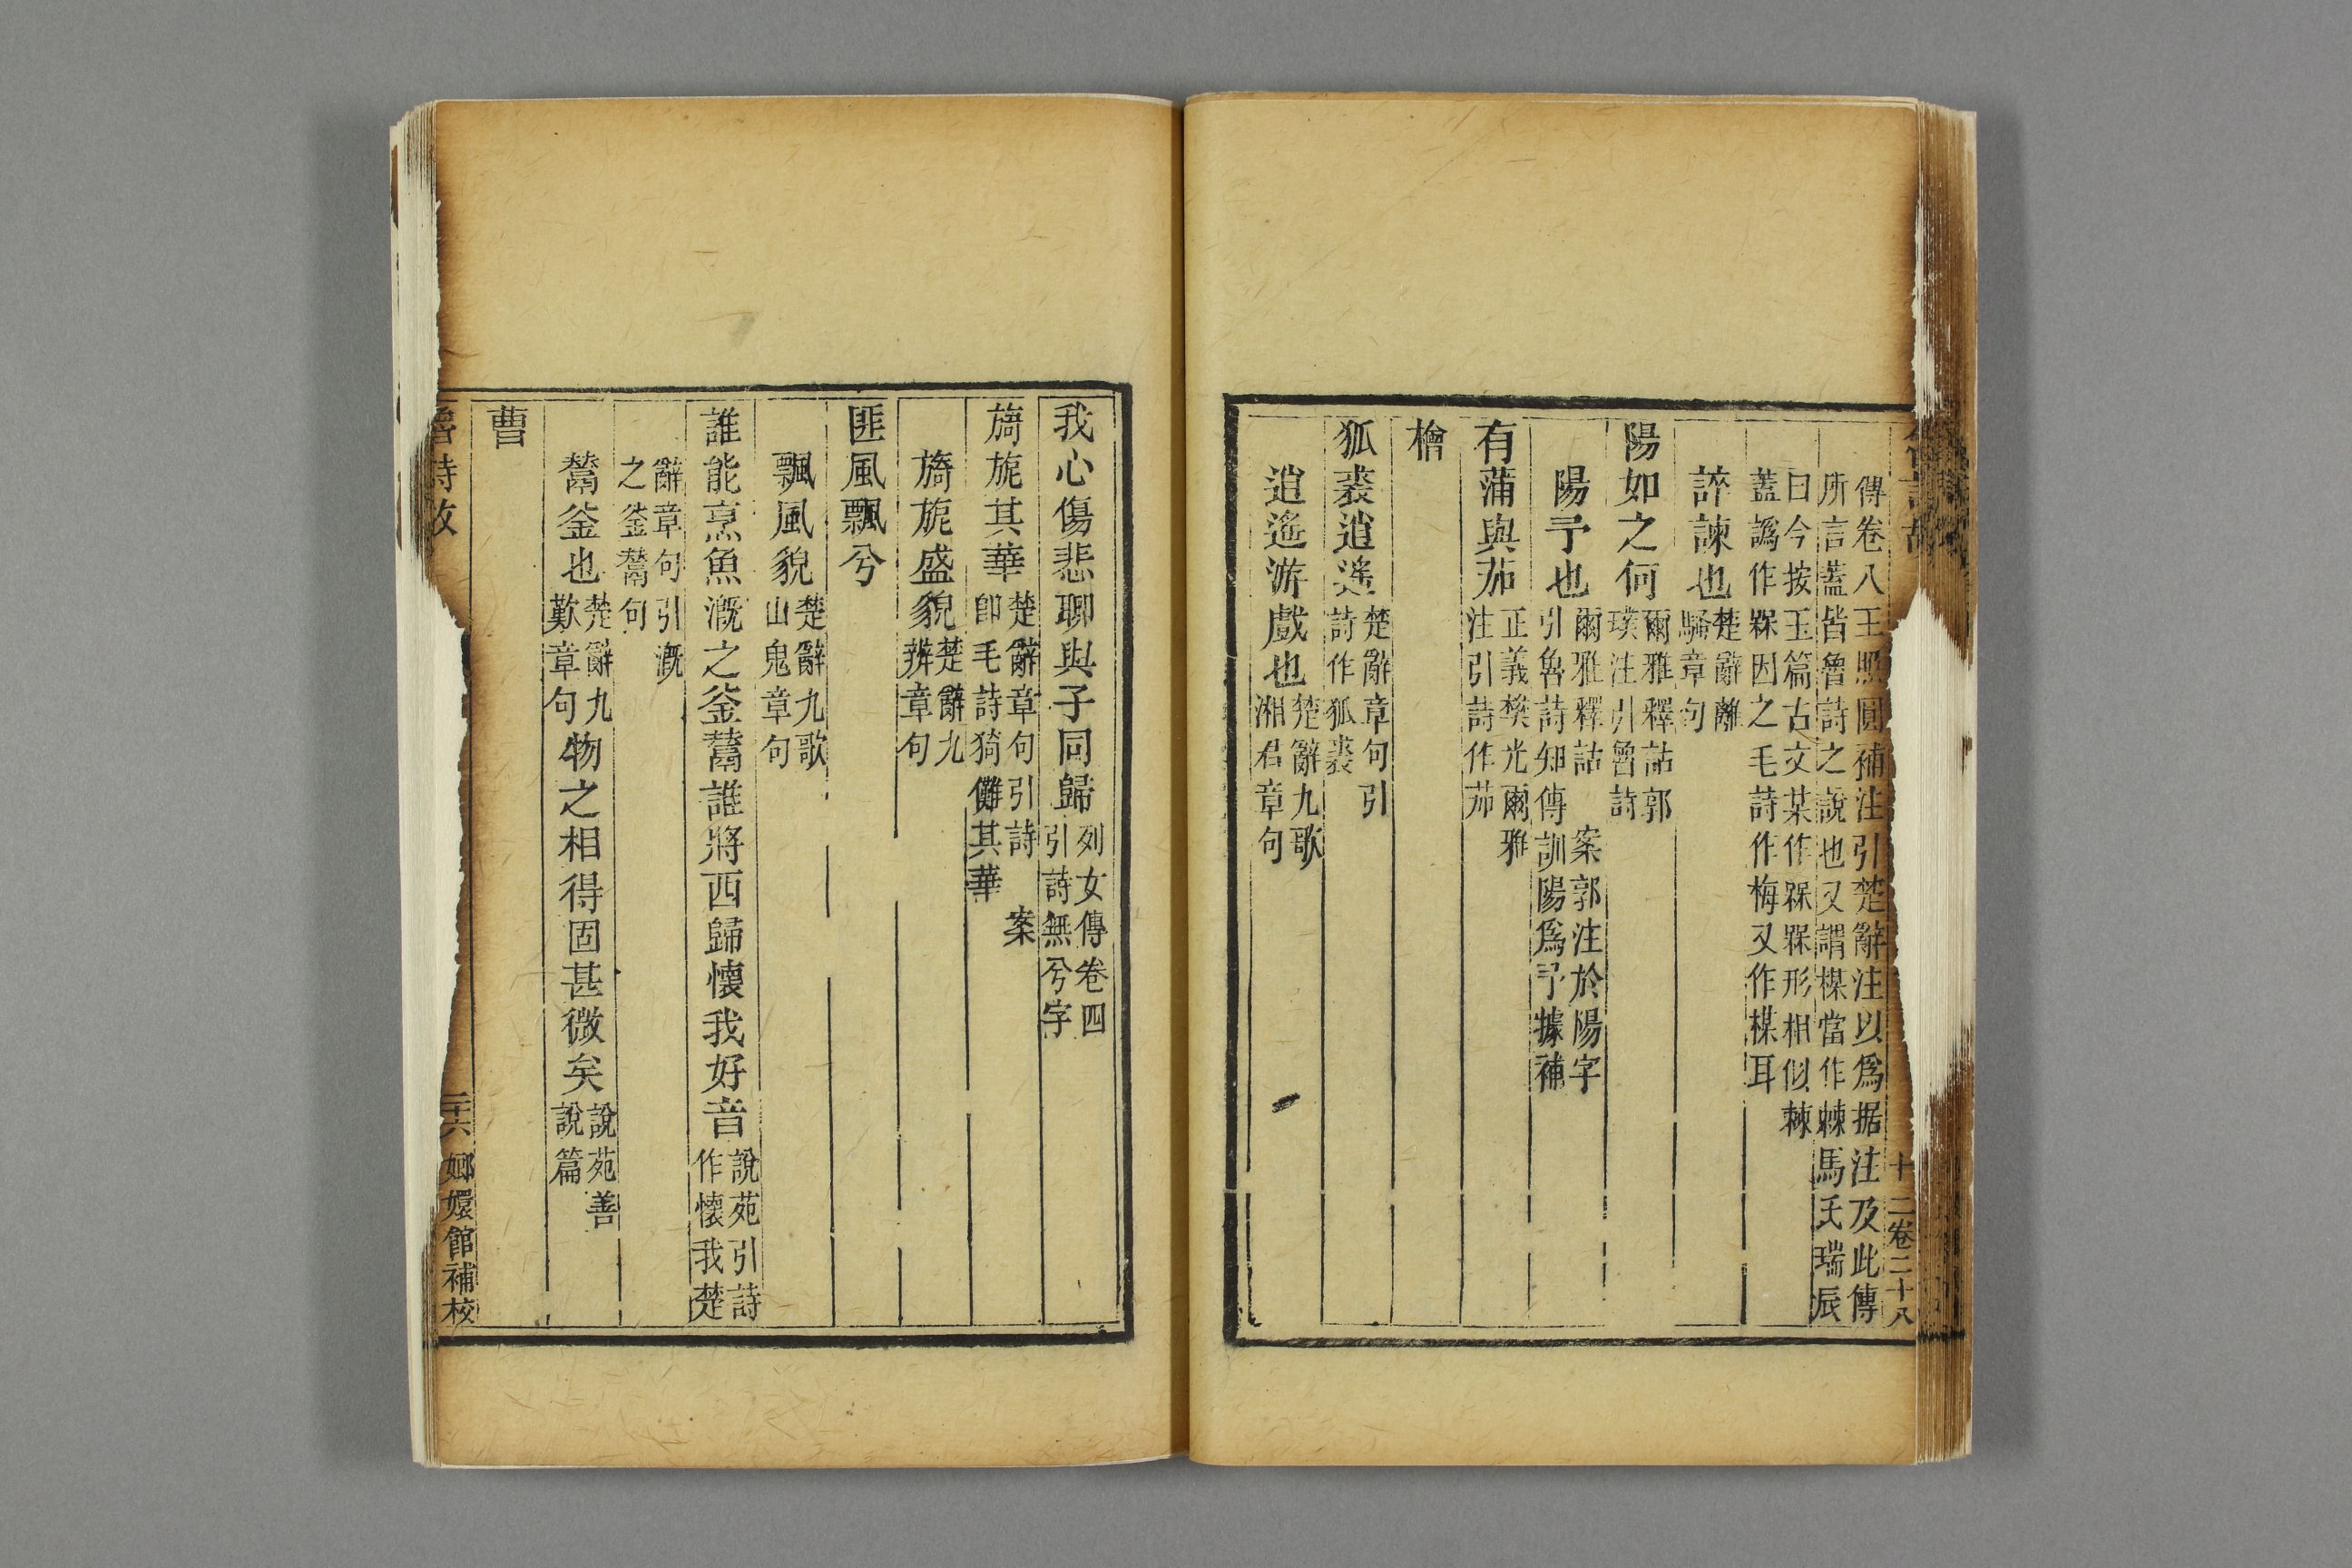 十二卷二十八
傳卷八王照圓補注引楚辭注以爲据注及此傳
所言蓋皆魯詩之說也又謂楳當作棘馬氏瑞辰
曰今按玉篇古文某作槑槑形相似棘
蓋譌作槑因之毛詩作梅又作楳耳
誶諫也楚辭離
騷章句
陽如之何爾雅釋詁郭
璞注引魯詩
陽予也爾雅釋詁 案郭注於陽字
引魯詩知傳訓陽爲予據補
有蒲與茄正義樊光爾雅
注引詩作茄
檜
狐裘逍遙楚辭章句引
詩作狐裘
逍遙游戲也楚辭九歌
湘君章句
我心傷悲聊與子同歸列女傳卷四
引詩無兮字
旖旎其華楚辭章句引詩 案
卽毛詩猗儺其華
旖旎盛貌楚辭九
辨章句
匪風飄兮
飄風貌楚辭九歌
山鬼章句
誰能烹魚漑之釜鬵誰將西歸懷我好音說苑引詩
作懷我楚
辭章句引漑
之釜鬵句
鬵釜也楚辭九
歎章句物之相得固甚微矣說苑善
說篇
曹
魯詩故
二十六 嫏嬛館補校